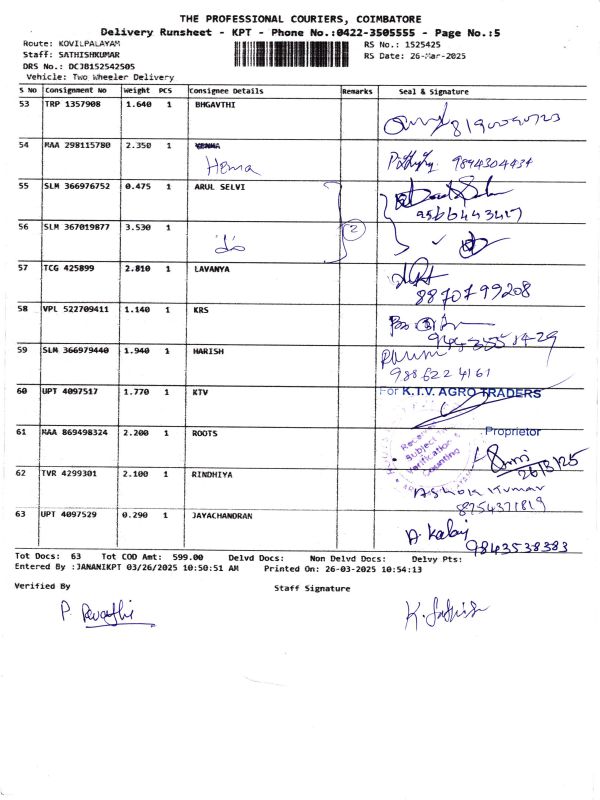 THE PROFESSIONAL COURIERS, COIMBATORE
Delivery Runsheet - KPT - Phone No.:0422-3505555 - Page No.:5
Route: KOVILPALAYAM
Staff: SATHISHKUMAR
DRS No.: DCJB152542505
Vehicle: Two Wheeler Delivery
RS No.: 1525425
RS Date: 26-Mar-2025
S No Consignment No Weight PCS Consignee Details Remarks Seal & Signature
53 TRP 1357908 1.640 1 BHGAVTHI
54 MAA 298115780 2.350 1
Hema 9894304434
55 SLM 366976752 0.475 1 ARUL SELVI
56 SLM 367019877 3.530 1
do 2
57 TCG 425899 2.810 1 LAVANYA
8870799208
58 VPL 522709411 1.140 1 KRS
59 SLM 366979440 1.940 1 HARISH
9886224161
60 UPT 4097517 1.770 1 KTV For K.T.V. AGRO TRADERS
61 MAA 869498324 2.200 1 ROOTS Proprietor
Subject
Verification &
Counting
26/3/25
62 TVR 4299301 2.100 1 RINDHIYA
Ashok Kumar
8754371819
63 UPT 4097529 0.290 1 JAYACHANDRAN
9843538383
Tot Docs: 63 Tot COD Amt: 599.00 Delvd Docs: Non Delvd Docs: Delvy Pts:
Entered By :JANANIKPT 03/26/2025 10:50:51 AM Printed On: 26-03-2025 10:54:13
Verified By Staff Signature
P. Revathi K. Sathish